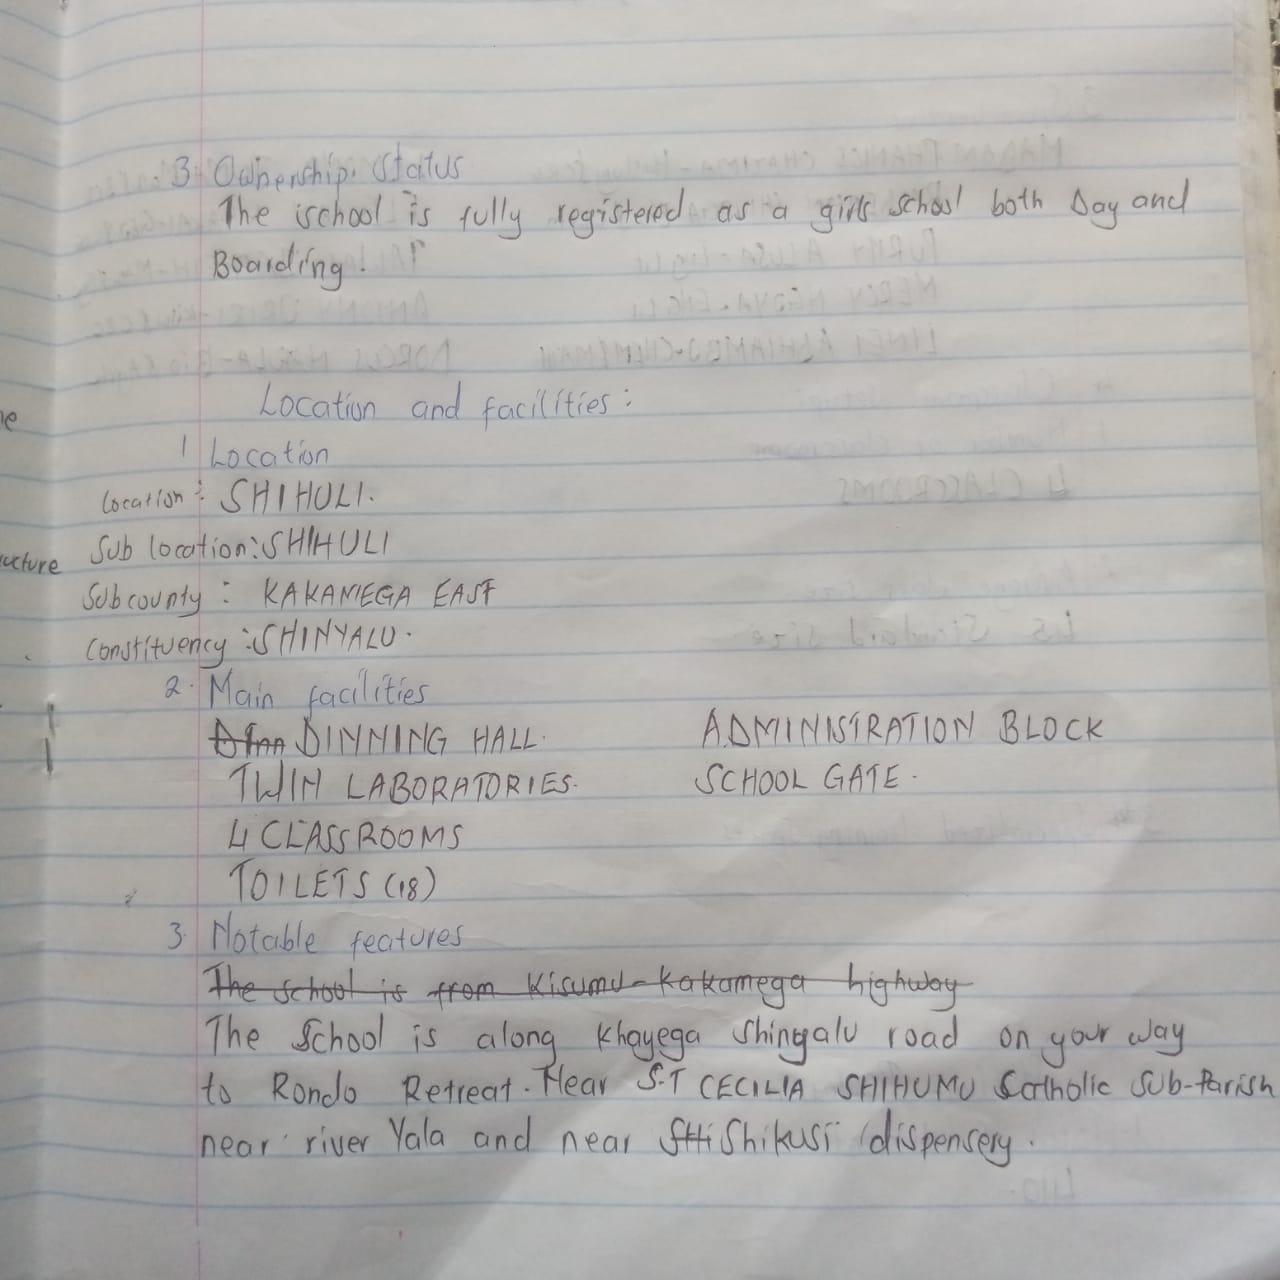 3. Ownership Status
The school is fully registered as a girls school both Day and
Boarding.
Location and facilities:
1 Location
Location: SHIHULI.
Sub location: SHIHULI
Subcounty: KAKAMEGA EAST
Constituency: SHINYALU.
2. Main facilities
DINNING HALL. ADMINISTRATION BLOCK
TWIN LABORATORIES. SCHOOL GATE.
4 CLASSROOMS
TOILETS (18)
3. Notable features
The school is from Kisumu-Kakamega highway
The School is along Khayega Shinyalu road on your way
to Rondo Retreat. Near S.T CECILIA SHIHUMU Catholic Sub-Parish
near river Yala and near Shikusi dispensery.